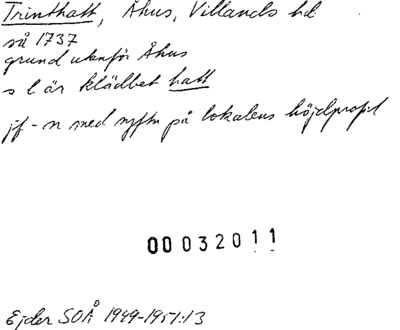 Trinthatt, Åhus, Villands hd
så 1737
grund utanför Åhus
s l är klädbet hatt
jf -n med syftn på lokalens höjdprofil
00032011
Ejder SOÅ 1949-1951:13